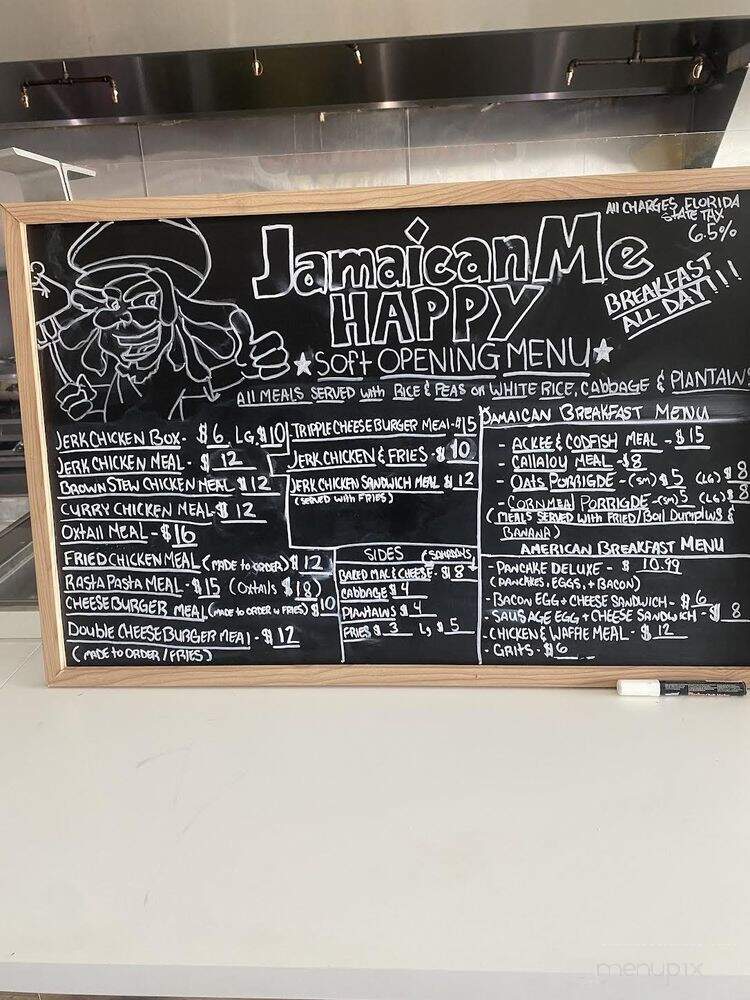 All CHARGES FLORIDA
STATE TAX
6.5%
Jamaican Me
HAPPY
BREAKFAST
ALL DAY!!!
SOFT OPENING MENU
All MEALS SERVED with RICE & PEAS or WHITE RICE, CABBAGE & PLANTAINS
JERK CHICKEN BOX - $6 LG. $10
JERK CHICKEN MEAL - $12
BROWN STEW CHICKEN MEAL $12
CURRY CHICKEN MEAL - $12
OXTAIL MEAL - $16
FRIED CHICKEN MEAL (MADE to ORDER) $12
RASTA PASTA MEAL - $15 (OXTAILS $18)
CHEESE BURGER MEAL (MADE to ORDER W FRIES) $10
DOUBLE CHEESE BURGER MEAL - $12
(MADE to ORDER / FRIES)
TRIPPLE CHEESE BURGER MEAL - $15
JERK CHICKEN & FRIES - $10
JERK CHICKEN SANDWICH MEAL $12
(SERVED with FRIES)
SIDES
BAKED MAC & CHEESE - $8
CABBAGE $4
PLANTAINS $4
FRIES $3 Lg $5
JAMAICAN BREAKFAST MENU
- ACKEE & CODFISH MEAL - $15
- CALLALOU MEAL - $8
- OATS PORRIGDE - (SM) $5 (LG) $8
- CORNMEAL PORRIGDE - (SM) 5 (LG) $8
(MEALS SERVED with FRIED/BOIL DUMPLINS &
BANANA)
AMERICAN BREAKFAST MENU
- PANCAKE DELUXE - $10.99
(PANCAKES, EGGS, + BACON)
- BACON EGG + CHEESE SANDWICH - $6
- SAUSAGE EGG + CHEESE SANDWICH - $8
- CHICKEN & WAFFLE MEAL - $12
- GRITS - $6
menupix